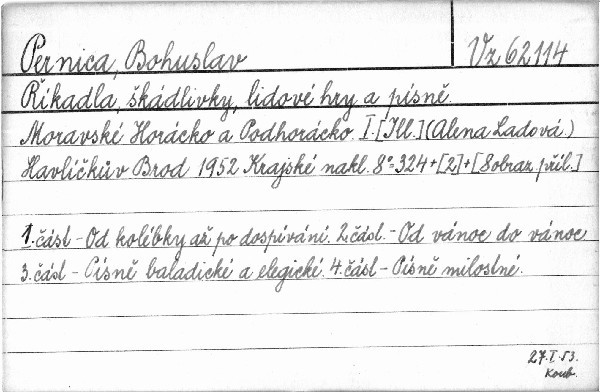 Pernica, Bohuslav
Vz 62114
Říkadla, škádlivky, lidové hry a písně.
Moravské Horácko a Podhorácko. I. [Ill.] (Alena Ladová.)
Havlíčkův Brod 1952 Krajské nakl. 8°-324+[2]+[8 obraz příl.]
1. část - Od kolébky až po dospívání. 2. část. - Od vánoc do vánoc
3. část - Písně baladické a elegické. 4. část - Písně milostné.
27.I.53.
Koub.